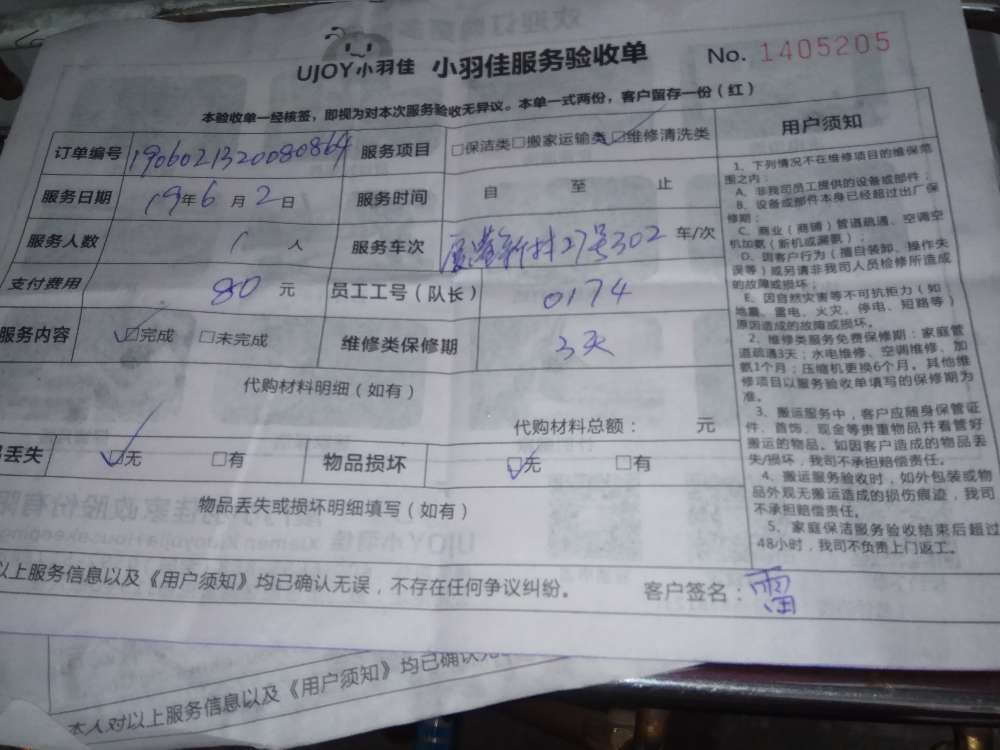 UJOY小羽佳 小羽佳服务验收单 No. 1405205
本验收单一经核签，即视为对本次服务验收无异议。本单一式两份，客户留存一份（红）
订单编号 1906021320080864 服务项目 □保洁类□搬家运输类☑维修清洗类
服务日期 19年6月2日 服务时间 自 至 止
服务人数 1人 服务车次 新村27号302 车/次
支付费用 80元 员工工号（队长） 0174
服务内容 ☑完成 □未完成 维修类保修期 3天
代购材料明细（如有）
代购材料总额： 元
丢失 ☑无 □有 物品损坏 ☑无 □有
物品丢失或损坏明细填写（如有）
以上服务信息以及《用户须知》均已确认无误，不存在任何争议纠纷。
客户签名：雷
用户须知
1、下列情况不在维修项目的维保范
围之内：
A、非我司员工提供的设备或部件；
B、设备或部件本身已经超过出厂保
修期；
C、商业（商铺）管道疏通、空调空
机加氨（新机或漏氨）；
D、因客户行为（擅自装卸、操作失
误等）或另请非我司人员检修所造成
的故障或损坏；
E、因自然灾害等不可抗拒力（如
地震、雷电、火灾、停电、短路等）
原因造成的故障或损坏。
2、维修类服务免费保修期：家庭管
道疏通3天；水电维修、空调维修、加
氨1个月；压缩机更换6个月。其他维
修项目以服务验收单填写的保修期为
准。
3、搬运服务中，客户应随身保管证
件、首饰、现金等贵重物品并看管好
搬运的物品。如因客户造成的物品丢
失/损坏，我司不承担赔偿责任。
4、搬运服务验收时，如外包装或物
品外观无搬运造成的损伤痕迹，我司
不承担赔偿责任。
5、家庭保洁服务验收结束后超过
48小时，我司不负责上门返工。
本人对以上服务信息以及《用户须知》均已确认无